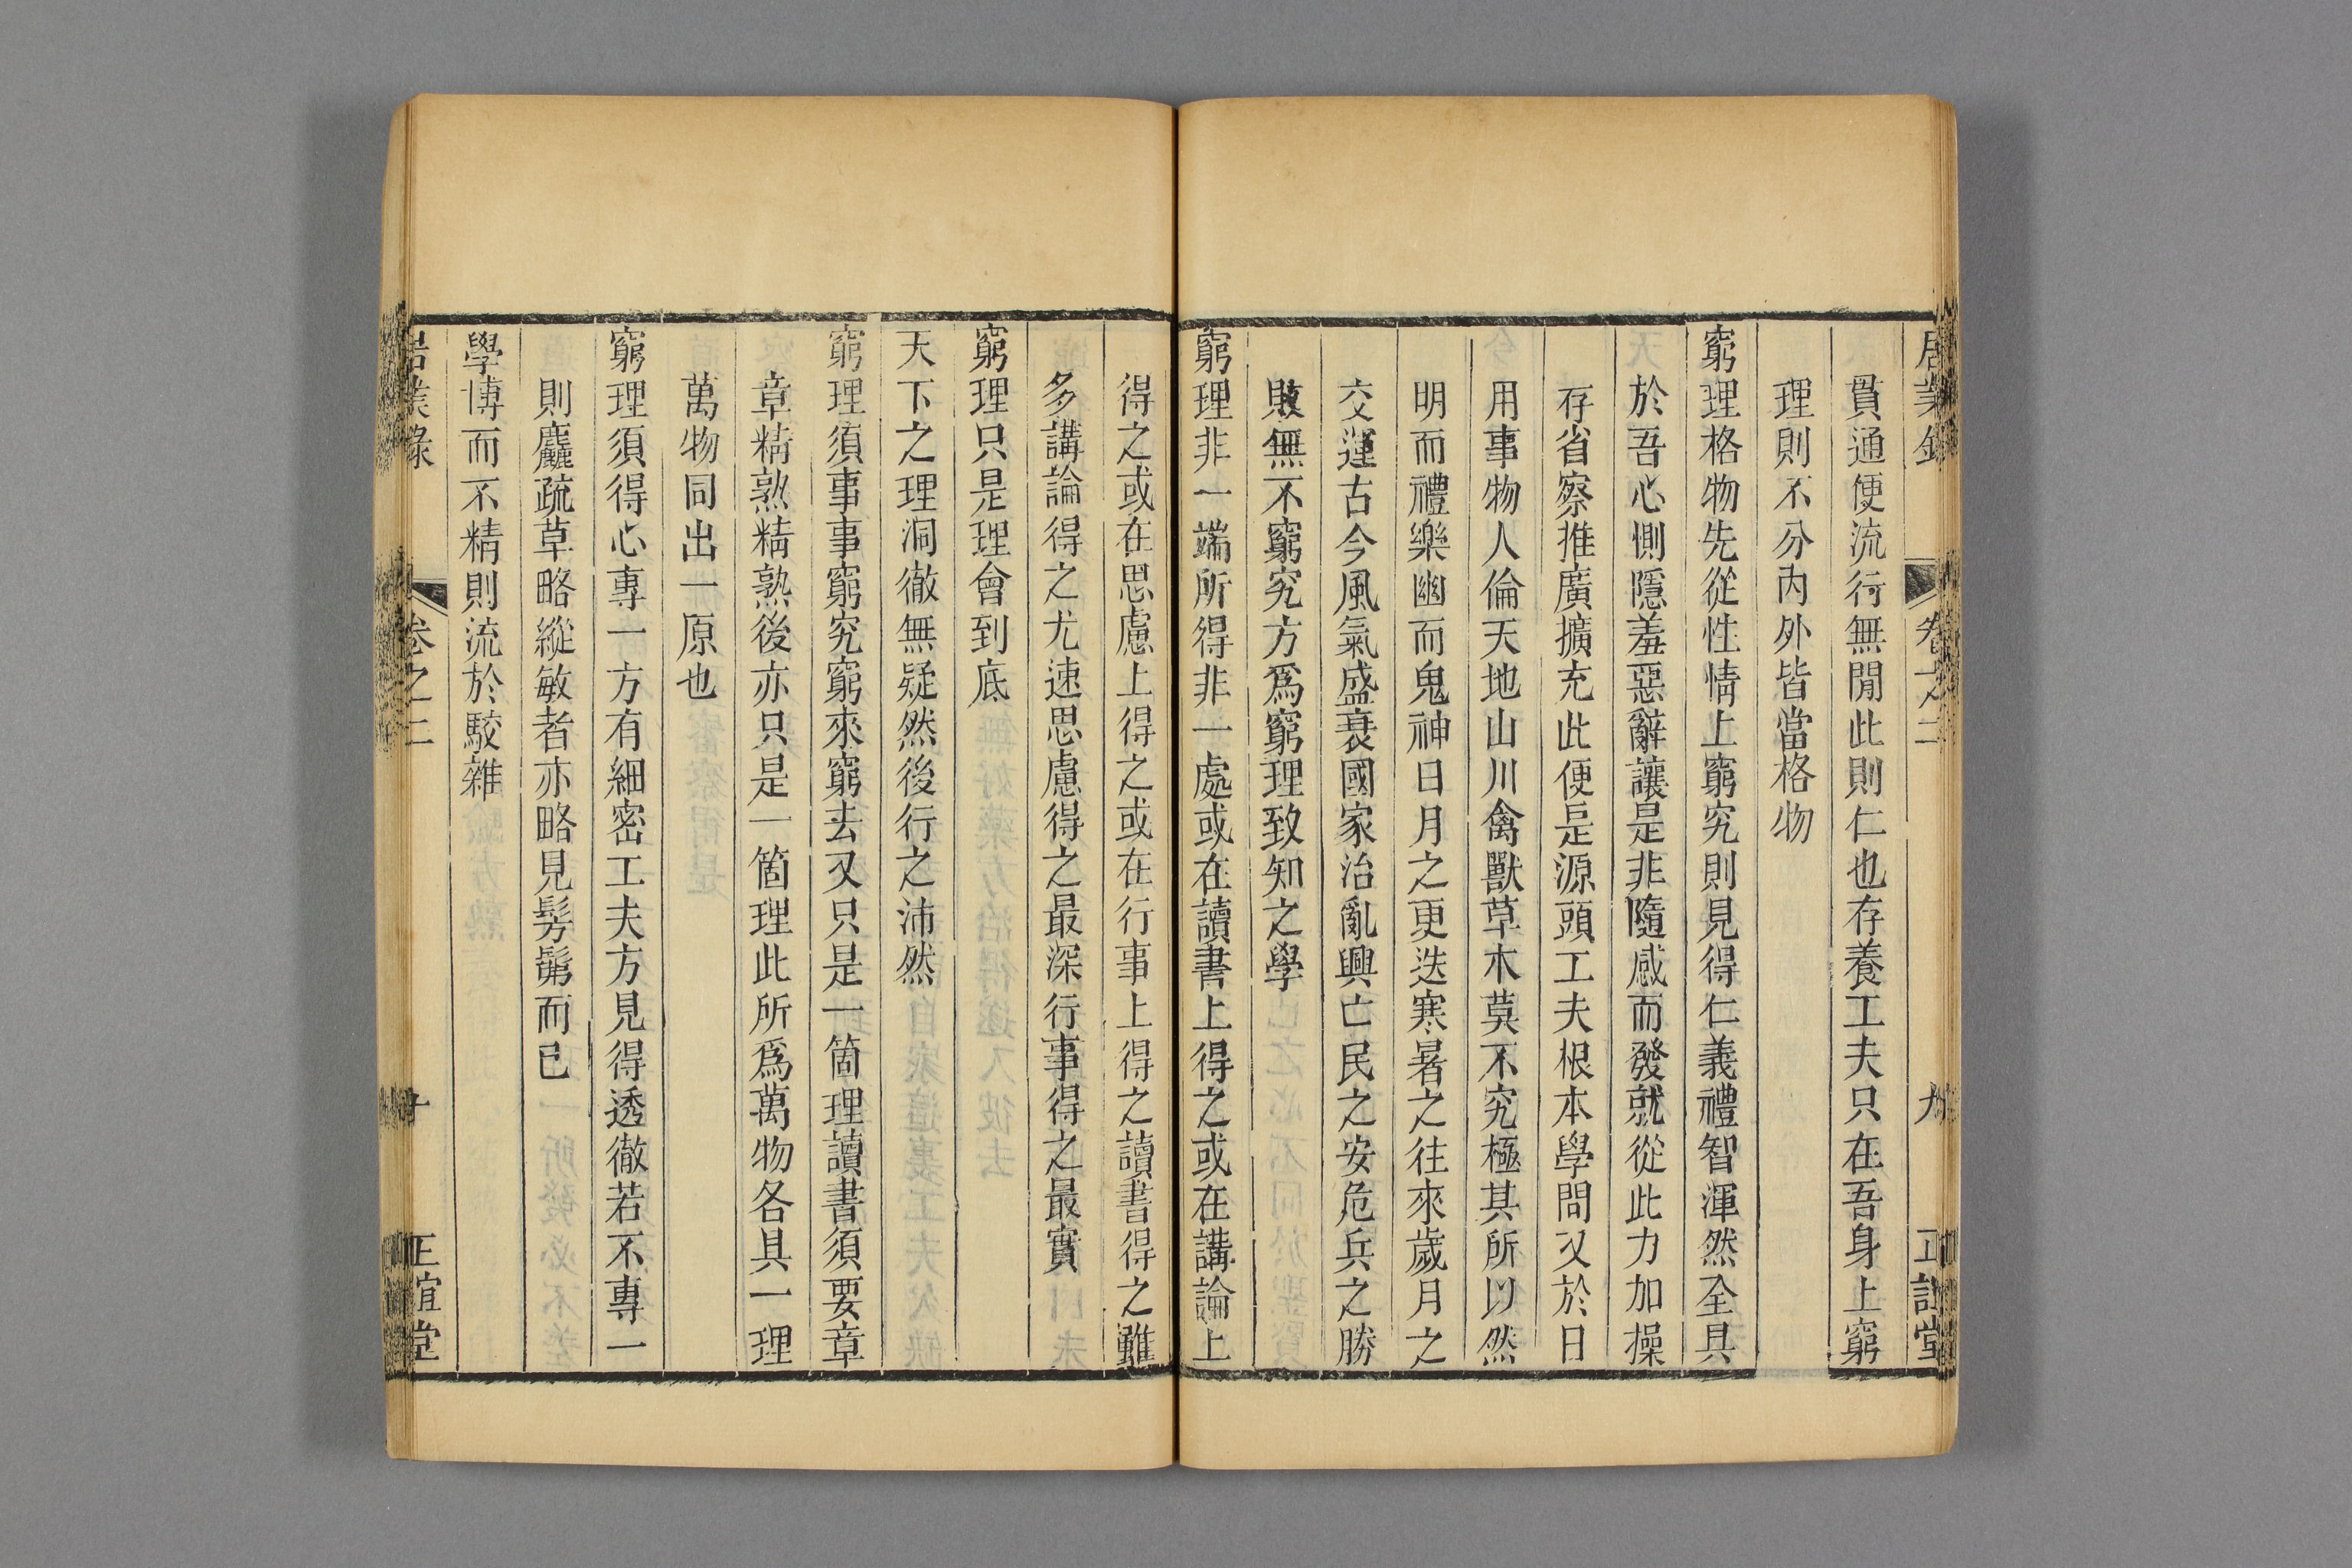 居業錄 卷之二 九 正誼堂
貫通便流行無閒此則仁也存養工夫只在吾身上窮
理則不分內外皆當格物
窮理格物先從性情上窮究則見得仁義禮智渾然全具
於吾心惻隱羞惡辭讓是非隨感而發就從此力加操
存省察推廣擴充此便是源頭工夫根本學問又於日
用事物人倫天地山川禽獸草木莫不究極其所以然
明而禮樂幽而鬼神日月之更迭寒暑之往來歲月之
交運古今風氣盛衰國家治亂興亡民之安危兵之勝
敗無不窮究方爲窮理致知之學
窮理非一端所得非一處或在讀書上得之或在講論上
得之或在思慮上得之或在行事上得之讀書得之雖
多講論得之尤速思慮得之最深行事得之最實
窮理只是理會到底
天下之理洞徹無疑然後行之沛然
窮理須事事窮究窮來窮去又只是一箇理讀書須要章
章精熟精熟後亦只是一箇理此所爲萬物各具一理
萬物同出一原也
窮理須得心專一方有細密工夫方見得透徹若不專一
則麤疏草略縱敏者亦略見髣髴而已
學博而不精則流於駁雜
居業錄 卷之二 十 正誼堂